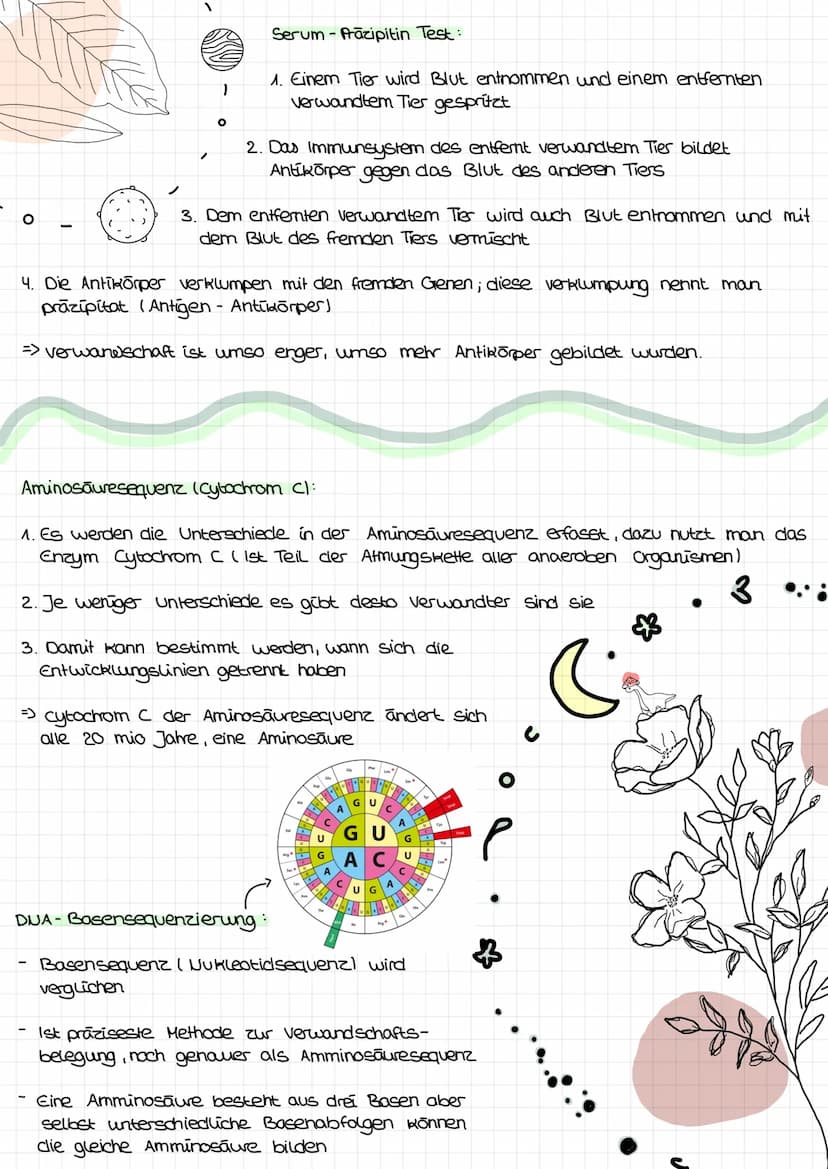 Serum - Präzipitin Test:
1. Einem Tier wird Blut entnommen und einem entfernten
verwandtem Tier gespritzt
2. Das Immunsystem des entfernt verwandtem Tier bildet
Antikörper gegen das Blut des anderen Tiers
3. Dem entfernten verwandtem Tier wird auch Blut entnommen und mit
dem Blut des fremden Tiers vermischt
4. Die Antikörper verklumpen mit den fremden Genen; diese verklumpung nennt man
präzipitat (Antigen - Antikörper)
=> verwandschaft ist umso enger, umso mehr Antikörper gebildet wurden.
Aminosäuresequenz (Cytochrom C):
1. Es werden die Unterschiede in der Aminosäuresequenz erfasst, dazu nutzt man das
Enzym Cytochrom C (Ist Teil der Atmungskette aller anaeroben Organismen)
2. Je weniger Unterschiede es gibt desto verwandter sind sie
3. Damit kann bestimmt werden, wann sich die
Entwicklungslinien getrennt haben
=> Cytochrom C der Aminosäuresequenz ändert sich
alle 20 mio Jahre, eine Aminosäure
A G U C
C A
U G U G
G A C U
A C
C U G A
DNA - Basensequenzierung:
- Basensequenz (Nukleotidsequenz) wird
verglichen
- Ist präziseste Methode zur Verwandschafts-
belegung, noch genauer als Amminosäuresequenz
- Eine Amminosäure besteht aus drei Basen aber
selbst unterschiedliche Basenabfolgen können
die gleiche Amminosäure bilden